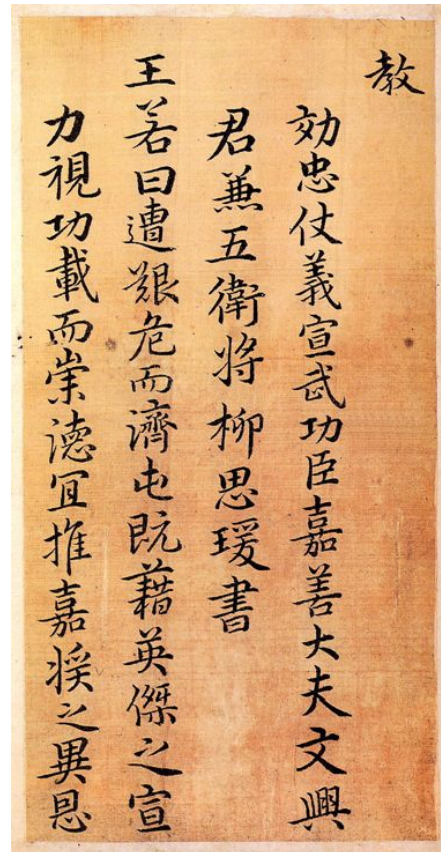 教
効忠仗義宣武功臣嘉善大夫文興
君兼五衛将柳思瑗書
王若曰遭艱危而濟屯既藉英傑之宣
力視功載而崇德宜推嘉奨之異恩